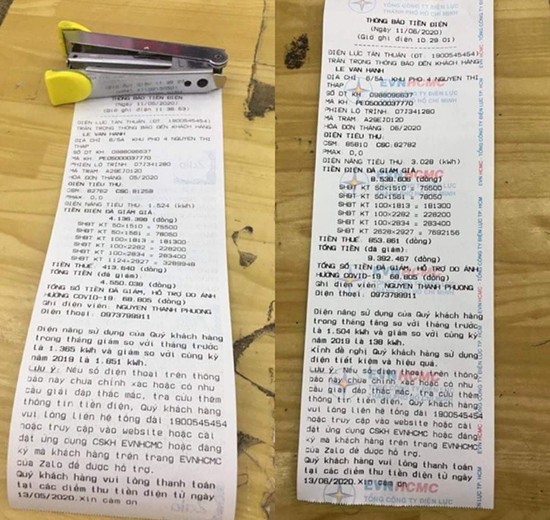 THÔNG BÁO TIỀN ĐIỆN
(Ngày 11/05/2020)
ĐIỆN LỰC TÂN THUẬN (ĐT 1900545454)
TRÂN TRỌNG THÔNG BÁO ĐẾN KHÁCH HÀNG
LE VAN HANH
ĐỊA CHỈ 8/5A KHU PHO 4 NGUYEN THI
THAP
SỐ DT KH 0988098837
MÃ KH PE05000037770
PHIÊN LỘ TRÌNH 073341280
MÃ TRẠM A29EJ012D
HÓA ĐƠN THÁNG 05/2020
ĐIỆN TIÊU THỤ
CSM: 82782 CSC 81258
PMAX 0,0
ĐIỆN NĂNG TIÊU THỤ 1.524 (kWh)
TIỀN ĐIỆN ĐÃ GIẢM GIÁ
4.136.398 (đồng)
SHBT KT 50×1510 = 75500
SHBT KT 50×1561 = 78050
SHBT KT 100×1813 = 181300
SHBT KT 100×2282 = 228200
SHBT KT 100×2834 = 283400
SHBT KT 1124×2927 = 3289948
TIỀN THUẾ 413.640 (đồng)
TỔNG TIỀN (đã giảm)
4.550.038 (đồng)
TỔNG SỐ TIỀN ĐÃ GIẢM, HỖ TRỢ DO ẢNH
HƯỞNG COVID-19 68.805 (đồng)
Ghi điện viên NGUYEN THANH PHUONG
Điện thoại: 0973799911
Điện năng sử dụng của Quý khách hàng
trong tháng giảm so với tháng trước
là 1.365 kWh và giảm so với cùng kỳ
năm 2019 là 1.651 kWh.
Lưu ý: Nếu số điện thoại trên thông
báo này chưa chính xác hoặc có nhu
cầu giải đáp thắc mắc, tra cứu thêm
thông tin tiền điện, Quý khách hàng
vui lòng liên hệ tổng đài 1900545454
hoặc truy cập vào website hoặc cài
đặt ứng dụng CSKH EVNHCMC hoặc đăng
ký mã khách hàng trên trang EVNHCMC
của Zalo để được hỗ trợ.
Quý khách hàng vui lòng thanh toán
tại các điểm thu tiền điện từ ngày
13/05/2020.Xin cảm ơn
THÔNG BÁO TIỀN ĐIỆN
(Ngày 11/06/2020)
(Giờ ghi điện 10:29:01)
ĐIỆN LỰC TÂN THUẬN (ĐT 1900545454)
TRÂN TRỌNG THÔNG BÁO ĐẾN KHÁCH HÀNG
LE VAN HANH
ĐỊA CHỈ 8/5A KHU PHO 4 NGUYEN THI
THAP
SỐ DT KH 0988098837
MÃ KH PE05000037770
PHIÊN LỘ TRÌNH 073341280
MÃ TRẠM A29EJ012D
HÓA ĐƠN THÁNG 06/2020
ĐIỆN TIÊU THỤ
CSM: 85810 CSC:82782
PMAX: 0,0
ĐIỆN NĂNG TIÊU THỤ 3.028 (kWh)
TIỀN ĐIỆN ĐÃ GIẢM GIÁ
8.538.606 (đồng)
SHBT KT 50×1510 = 75500
SHBT KT 50×1561 = 78050
SHBT KT 100×1813 = 181300
SHBT KT 100×2282 = 228200
SHBT KT 100×2834 = 283400
SHBT KT 2628×2927 = 7692156
TIỀN THUẾ 853.861 (đồng)
TỔNG TIỀN (đã giảm)
9.392.467 (đồng)
TỔNG SỐ TIỀN ĐÃ GIẢM, HỖ TRỢ DO ẢNH
HƯỞNG COVID-19 68.805 (đồng)
Ghi điện viên: NGUYEN THANH PHUONG
Điện thoại: 0973799911
Điện năng sử dụng của Quý khách hàng
trong tháng tăng so với tháng trước
là 1.504 kWh và giảm so với cùng kỳ
năm 2019 là 138 kWh.
Kính đề nghị Quý khách hàng sử dụng
điện tiết kiệm và hiệu quả.
Lưu ý: Nếu số điện thoại trên thông
báo này chưa chính xác hoặc có nhu
cầu giải đáp thắc mắc, tra cứu thêm
thông tin tiền điện, Quý khách hàng
vui lòng liên hệ tổng đài 1900545454
hoặc truy cập vào website hoặc cài
đặt ứng dụng CSKH EVNHCMC hoặc đăng
ký mã khách hàng trên trang EVNHCMC
của Zalo để được hỗ trợ.
Quý khách hàng vui lòng thanh toán
tại các điểm thu tiền điện từ ngày
13/06/2020.Xin cảm ơn
EVNHCMC
TỔNG CÔNG TY ĐIỆN LỰC